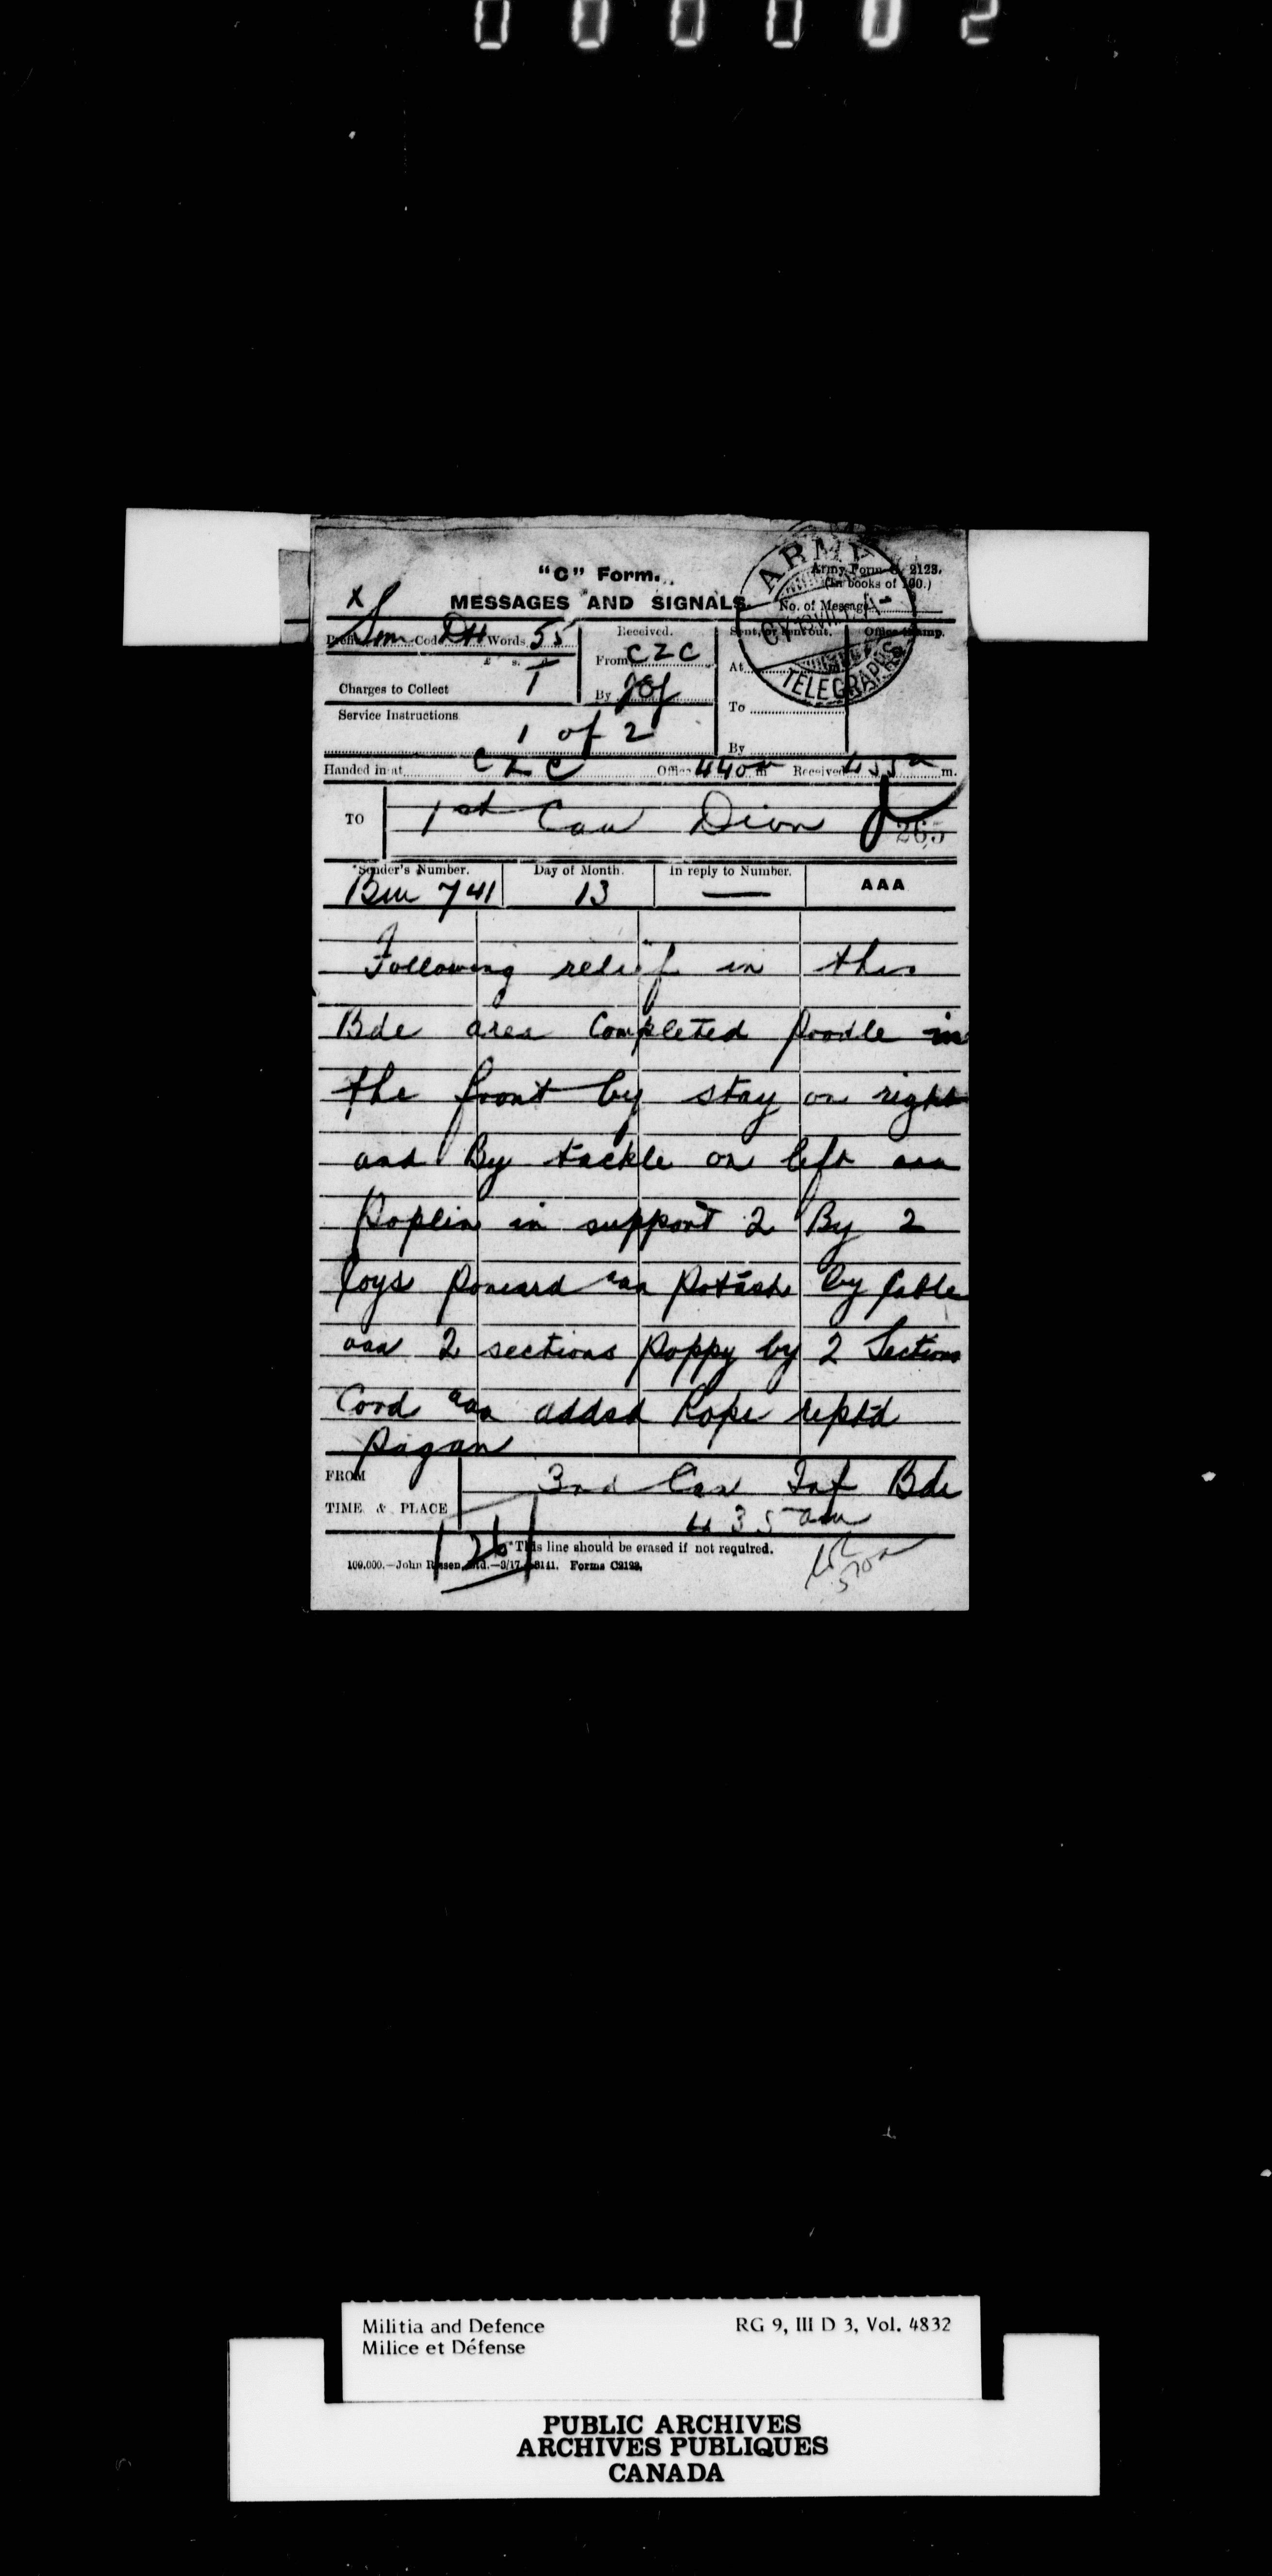 000002
"C" Form.
Army Form C. 2123.
(In books of 100.)
MESSAGES AND SIGNALS.
No. of Message
Prefix Sm Code DH Words 55
Received.
Sent, or sent out.
Office Stamp.
From CZC
At
ARMY
TELEGRAPHS
Charges to Collect
By
To
Service Instructions
1 of 2
By
Handed in at CZC Office 440a m Received 455a m.
TO
1st Can Divn
265
*Sender's Number.
Day of Month.
In reply to Number.
AAA
Bm 741
13
—
Following relief in this
Bde area completed Poodle in
the front by stay on right
and By tackle on left aaa
Poplin in support 2 By 2
Coys Poniard aaa Potash by Cable
aaa 2 sections Poppy by 2 Sections
Cord aaa added Rope reptd
Pagan
FROM
3rd Can Inf Bde
TIME & PLACE
435 am
*This line should be erased if not required.
Forms C2123.
Militia and Defence
RG 9, III D 3, Vol. 4832
Milice et Défense
PUBLIC ARCHIVES
ARCHIVES PUBLIQUES
CANADA